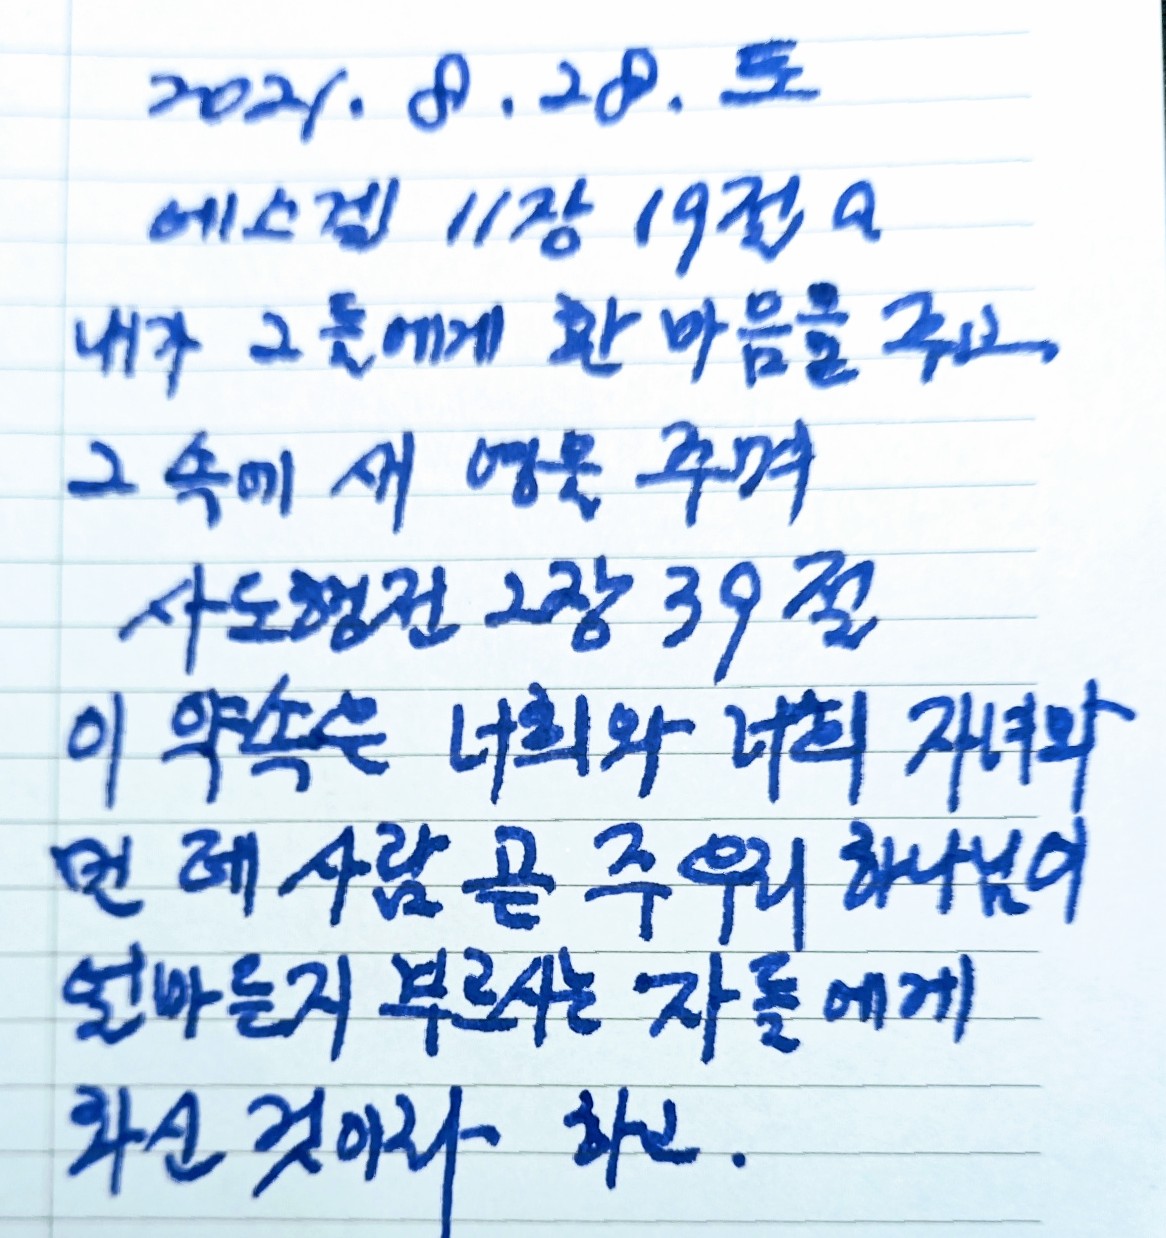 2021. 8. 28. 토
에스겔 11장 19절 a
내가 그들에게 한 마음을 주고,
그 속에 새 영을 주며
사도행전 2장 39절
이 약속은 너희와 너희 자녀와
먼 데 사람 곧 주 우리 하나님이
얼마든지 부르시는 자들에게
하신 것이라 하고.